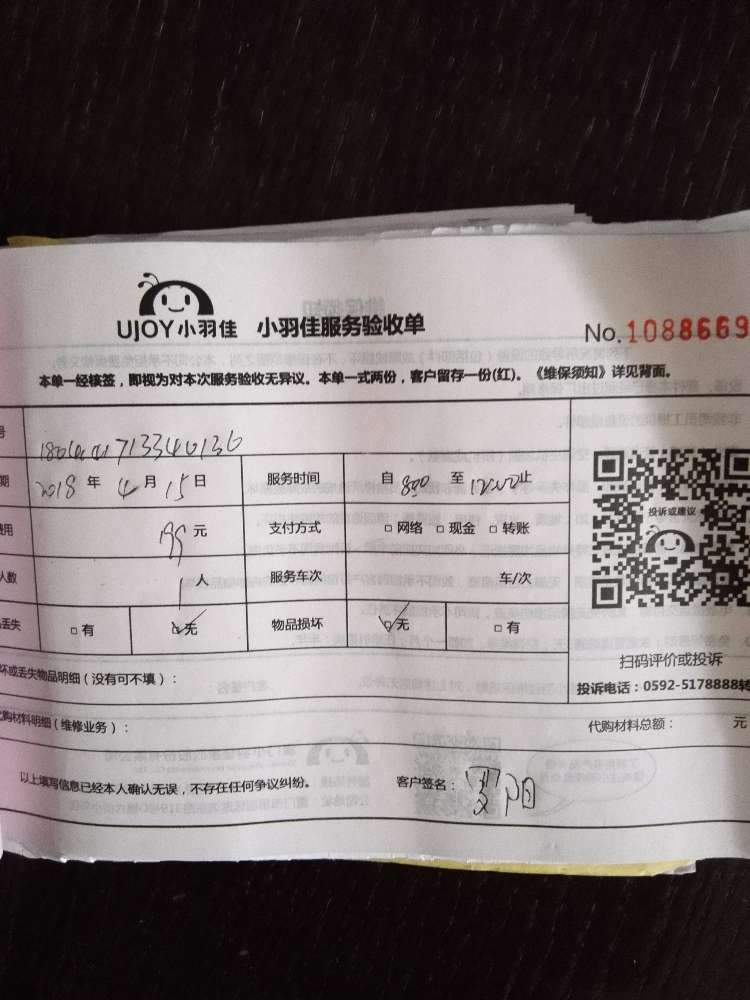 UJOY小羽佳 小羽佳服务验收单
No.1088669
本单一经核签，即视为对本次服务验收无异议。本单一式两份，客户留存一份(红)。《维保须知》详见背面。
号
期 2018 年 4 月 15 日 服务时间 自 800 至 1200 止
费用 199 元 支付方式 □ 网络 □ 现金 □ 转账
人数 1 人 服务车次 车/次
品丢失 □ 有 □ 无 物品损坏 □ 无 □ 有
投诉或建议
扫码评价或投诉
投诉电话：0592-5178888转
坏或丢失物品明细（没有可不填）：
代购材料明细（维修业务）： 代购材料总额： 元
以上填写信息已经本人确认无误，不存在任何争议纠纷。 客户签名：